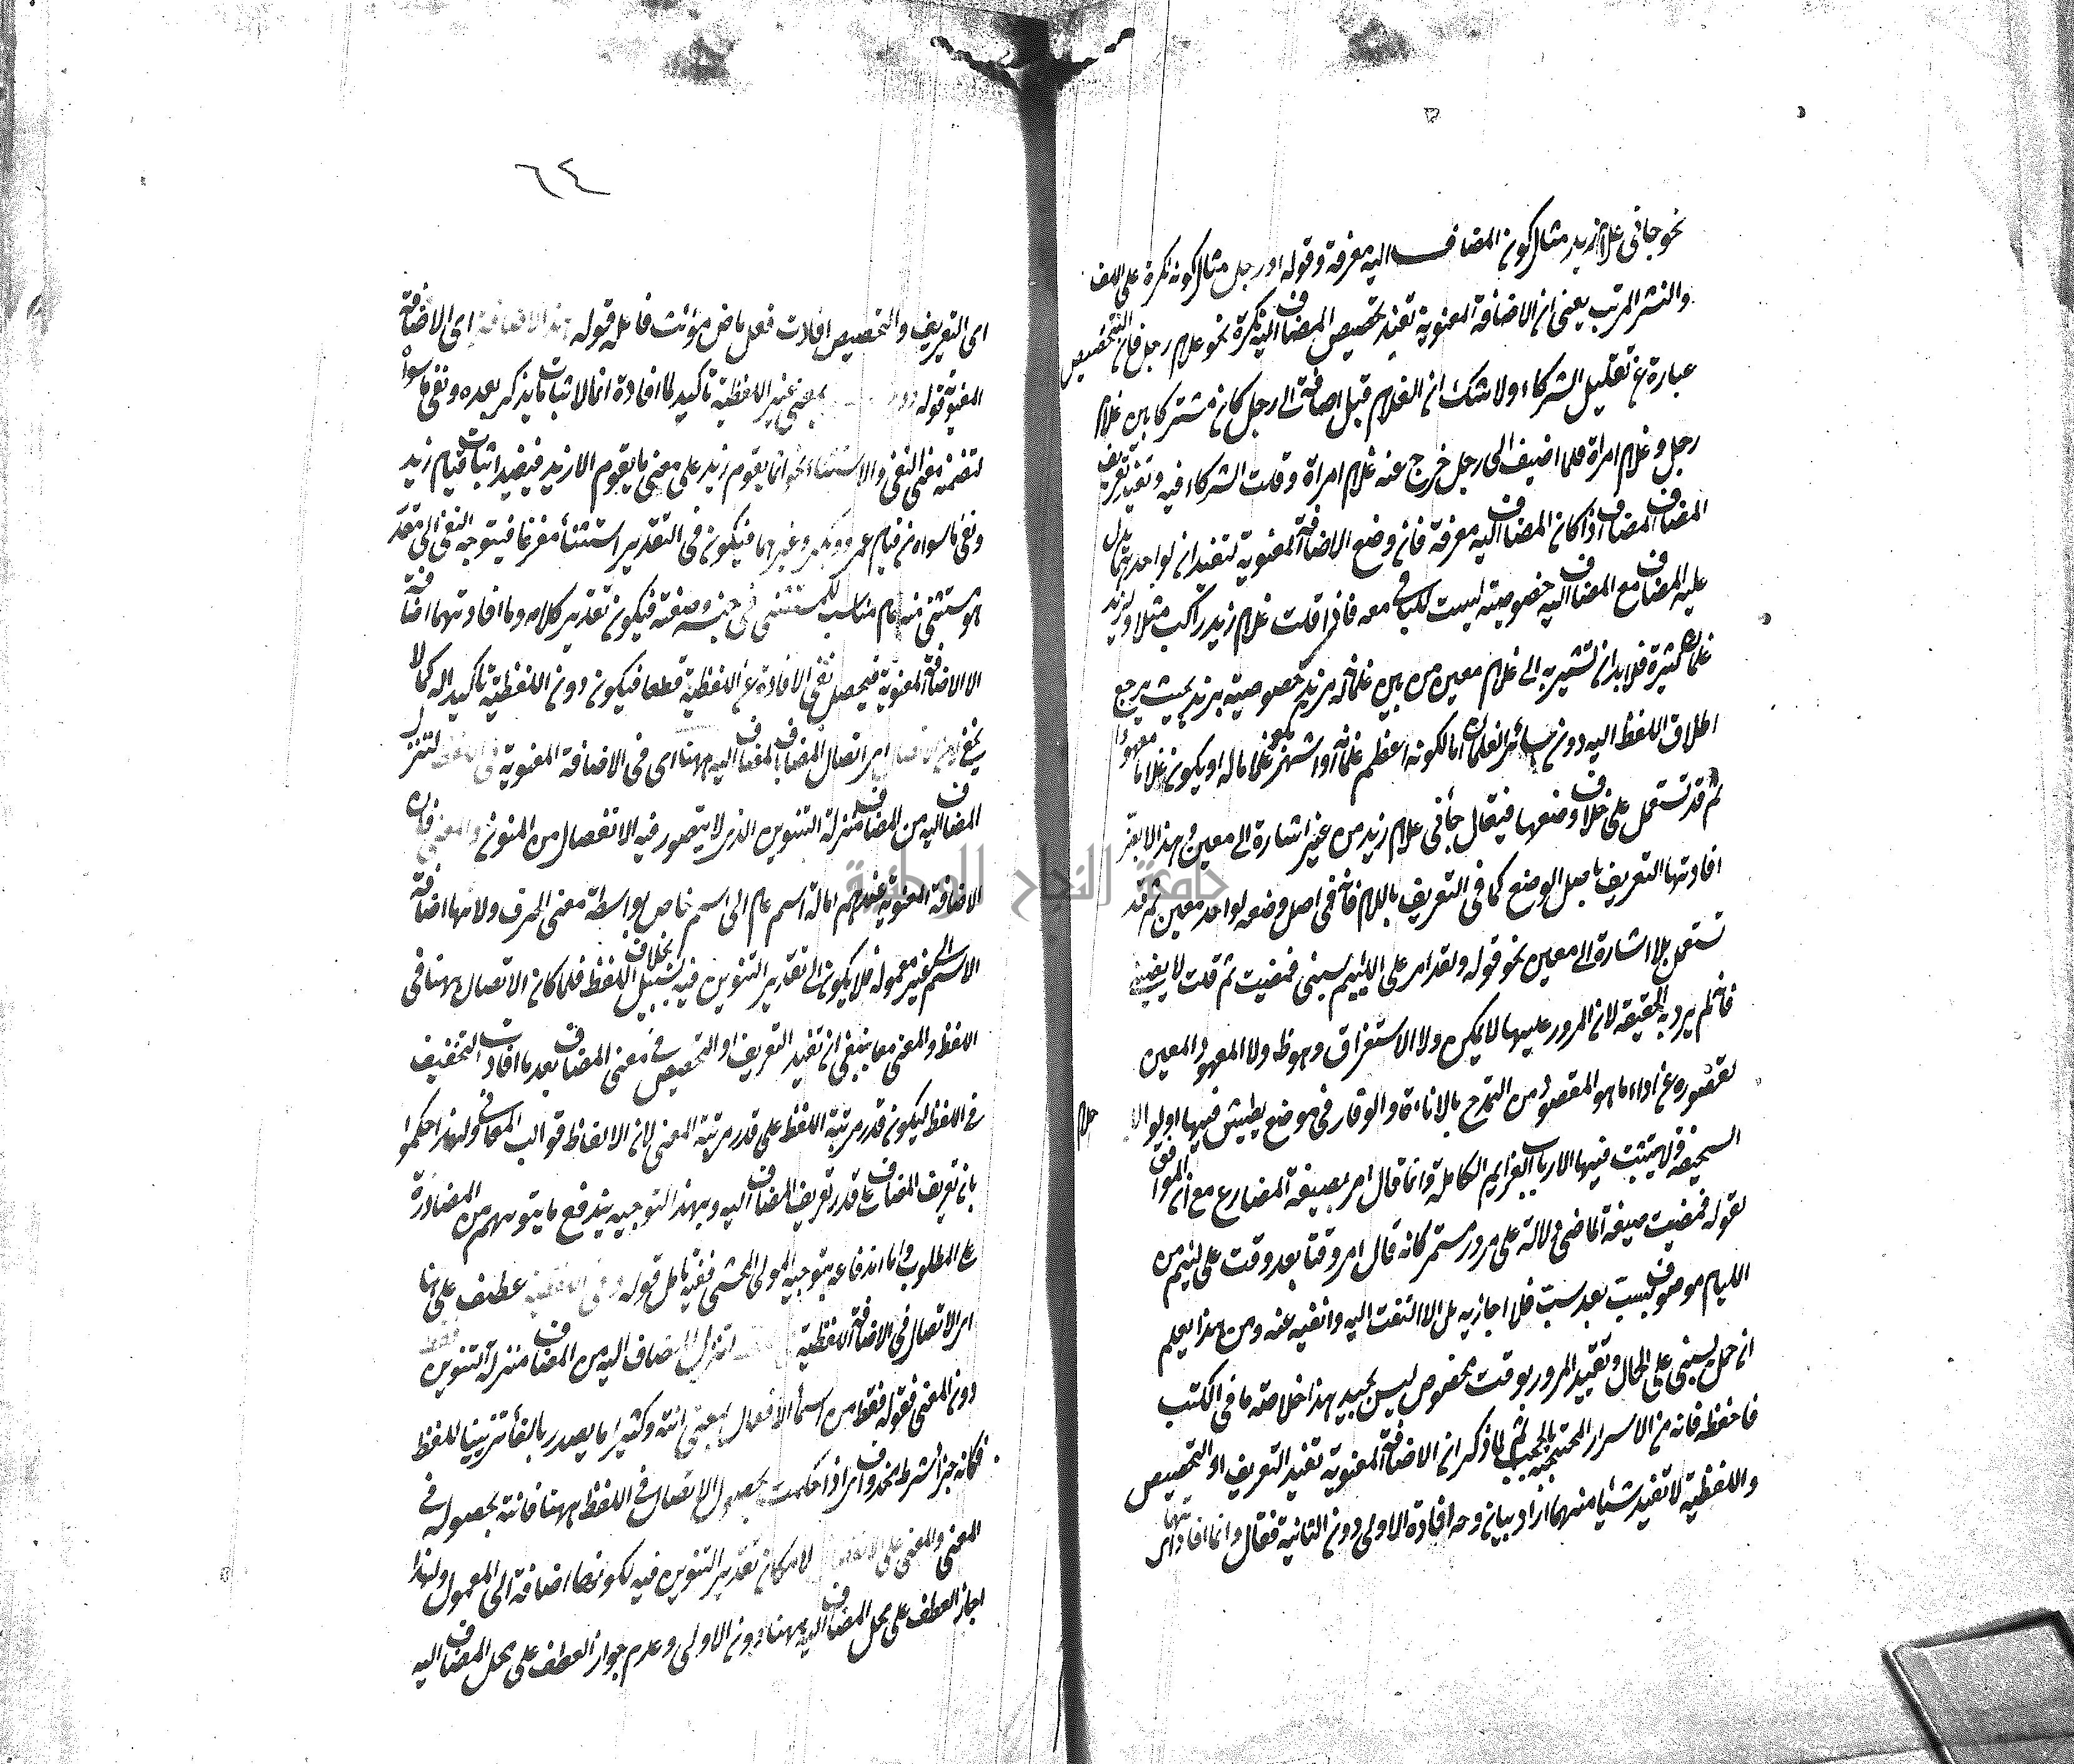 نحو جاني غلام زيد مثال كون المضاف اليه معرفة وقوله او رجل مثال كونه نكرة على اللف
والنشر المرتب يعنى ان الاضافة المعنوية تفيد تخصيص المضاف اليه نكرة نحو غلام رجل فان التخصيص
عبارة عن تقليل الشركاء ولا شك ان الغلام قبل اضافته الى رجل كان مشتركا بين غلام
رجل وغلام امراة فلما اضيف الى رجل خرج عنه غلام امراة وقلت الشركاء فيه وتفيد تعريف
المضاف المضاف اذا كان المضاف اليه معرفة فان وضع الاضافة المعنوية لتفيد ان لواحد مما يدل
عليه المضاف مع المضاف اليه خصوصية ليست للباقى معه فاذا قلت غلام زيد راكب مثلا ولزيد
غلمان كثيرة فلا بد ان تشير به الى غلام معين من بين غلمانه مزيد خصوصية بزيد بحيث يرجع
اطلاق اللفظ اليه دون سائر الغلمان اما لكونه اعظم غلمانه او اشهر بكونه غلاما له او يكون غلاما معهودا
ثم قد تستعمل على خلاف وضعها فيقال جاني غلام زيد من غير اشارة الى معين وهذا لا يضر
افادتها التعريف باصل الوضع كما فى التعريف باللام فانه فى اصل وضعه لواحد معين ثم قد
تستعمل بلا اشارة الى معين نحو قوله ولقد امر على اللئيم يسبنى فمضيت ثم قلت لا يعنينى
فانه لم يرد به الحقيقة لان المرور عليها لا يمكن ولا الاستغراق وهو ظ ولا المعهود المعين
لقصوره عن اداء ما هو المقصود من التمدح بالاناءة والوقار فى موضع يطيش فيها اولو الا حلام
السخيفة ولا يثبت فيها الا ارباب العزايم الكاملة وانما قال امر بصيغة المضارع مع ان الموافق
لقوله فمضيت صيغة الماضى دلالة على مرور مستمر كانه قال امر وقتا بعد وقت على لئيم من
الليام موصوف بسب بعد سب فلا اجازيه بل لا التفت اليه واتقيه عنه ومن هذا يعلم
ان حمل يسبنى على الحال وتقييد المرور بوقت مخصوص ليس بجيد هذا خلاصة ما فى الكتب
فاحفظه فانه من الاسرار المحتجبة بالحجب ثم لما ذكر ان الاضافة المعنوية تفيد التعريف او التخصيص
واللفظية لا تفيد شيئا منهما اراد بيان وجه افادة الاولى دون الثانية فقال وانما افادتهما اى
٦٤
اى التعريف والتخصيص افادت فعل ماض مؤنث فاعله قوله هذه الاضافة اى الاضافة
المعنوية قوله دون بمعنى غير اللفظية تاكيد لما افادة انما لاثبات ما يذكر بعده ونفى ما سواه
لتضمنه معنى النفى والاستثناء نحو انما يقوم زيد على معنى ما يقوم الا زيد فيفيد اثبات قيام زيد
ونفى ما سواه من قيام عمرو وبكر وغيرهما فيكون فى التقدير استثناء مفرغا فيتوجه النفى الى مقدر
هو مستثنى منه عام مناسب للمستثنى فى جنسه وصفته فيكون تقدير كلامه وما افادتهما اضافة
الا الاضافة المعنوية فيحصل نفى الافادة عن اللفظية قطعا فيكون دون اللفظية تاكيدا له كما لا
يخفى لان الاتصال اى اتصال المضاف بالمضاف اليه ههنا اى فى الاضافة المعنوية فى اللفظ لتنزل
المضاف اليه من المضاف منزلة التنوين الذى لا يتصور فيه الانفصال من المنون والمعنى فان
الاضافة المعنوية عندهم امالة اسم عام الى اسم خاص بواسطة معنى الحرف ولانها اضافة
الاسم الى غير معموله فلا يكون الى تقدير التنوين فيه سبيل بخلاف اللفظ فلما كان الاتصال ههنا فى
اللفظ والمعنى معا ينبغى ان تفيد التعريف او التخصيص فى معنى المضاف بعد ما افادت التخفيف
فى اللفظ ليكون قدر مرتبة اللفظ على قدر مرتبة المعنى لان الالفاظ قوالب المعانى ولهذا حكموا
بان تعريف المضاف على قدر تعريف المضاف اليه وبهذا التوجيه يندفع ما يتوهم من المصادرة
على المطلوب واما اندفاعه بتوجيه المولى المحشى ففيه تامل قوله وفى اللفظية عطف على ههنا
اى الاتصال فى الاضافة اللفظية لتنزل المضاف اليه من المضاف منزلة التنوين فقط
دون المعنى فقوله فقط من اسماء الافعال بمعنى انته وكثيرا ما يصدر بالفاء تزيينا للفظ
فكانه جزاء شرط محذوف اى اذا حكمت بحصول الاتصال فى اللفظ ههنا فانته بحصوله فى
المعنى والمعنى على الانفصال لامكان تقدير التنوين فيه لكونها اضافة الى المعمول ولهذا
اجاز العطف على محل المضاف اليه ههنا دون الاولى وعدم جواز العطف على محل المضاف اليه
جامعة النجاح الوطنية